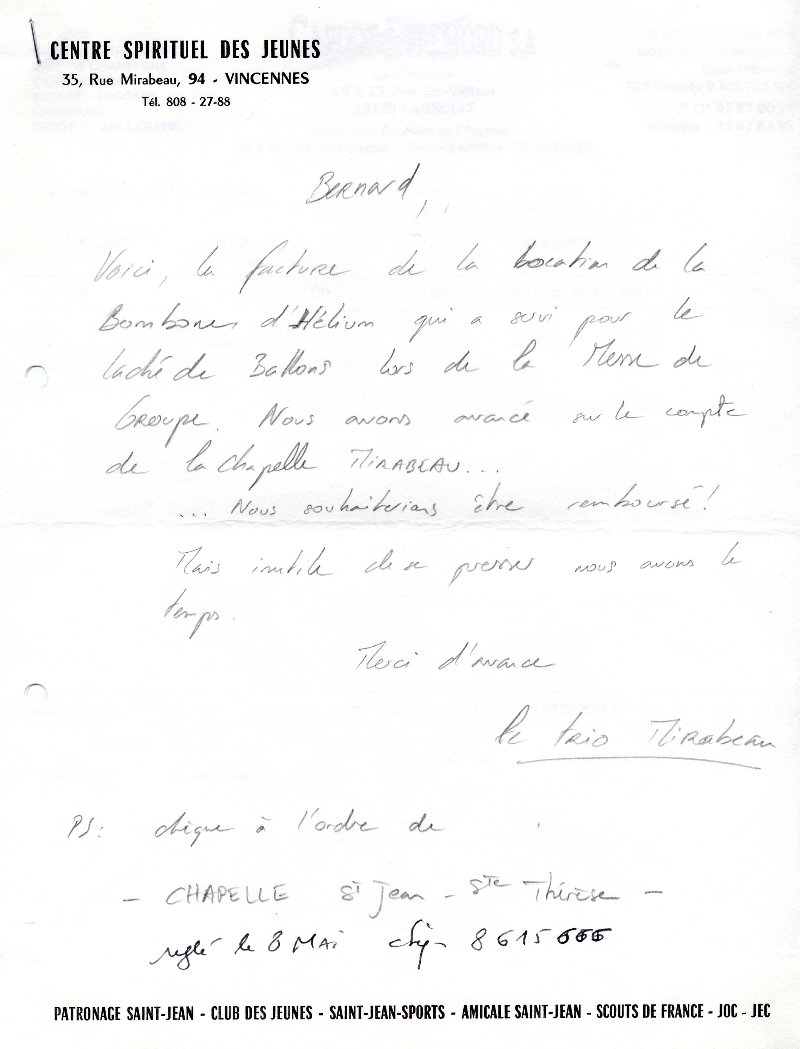 CENTRE SPIRITUEL DES JEUNES
35, Rue Mirabeau, 94 - VINCENNES
Tél. 808 - 27-88
Bernard,
Voici, la facture de la location de la
Bombones d'Hélium qui a suivi pour le
laché de Ballons lors de la Messe de
Groupe. Nous avons avancé sur le compte
de la chapelle MIRABEAU...
... Nous souhaiterions être remboursé!
Mais inutile de se presser nous avons le
temps.
Merci d'avance
le trio Mirabeau
PS: chèque à l'ordre de
- CHAPELLE St Jean - Ste Thérèse -
réglé le 8 MAI 8615666
PATRONAGE SAINT-JEAN - CLUB DES JEUNES - SAINT-JEAN-SPORTS - AMICALE SAINT-JEAN - SCOUTS DE FRANCE - JOC - JEC